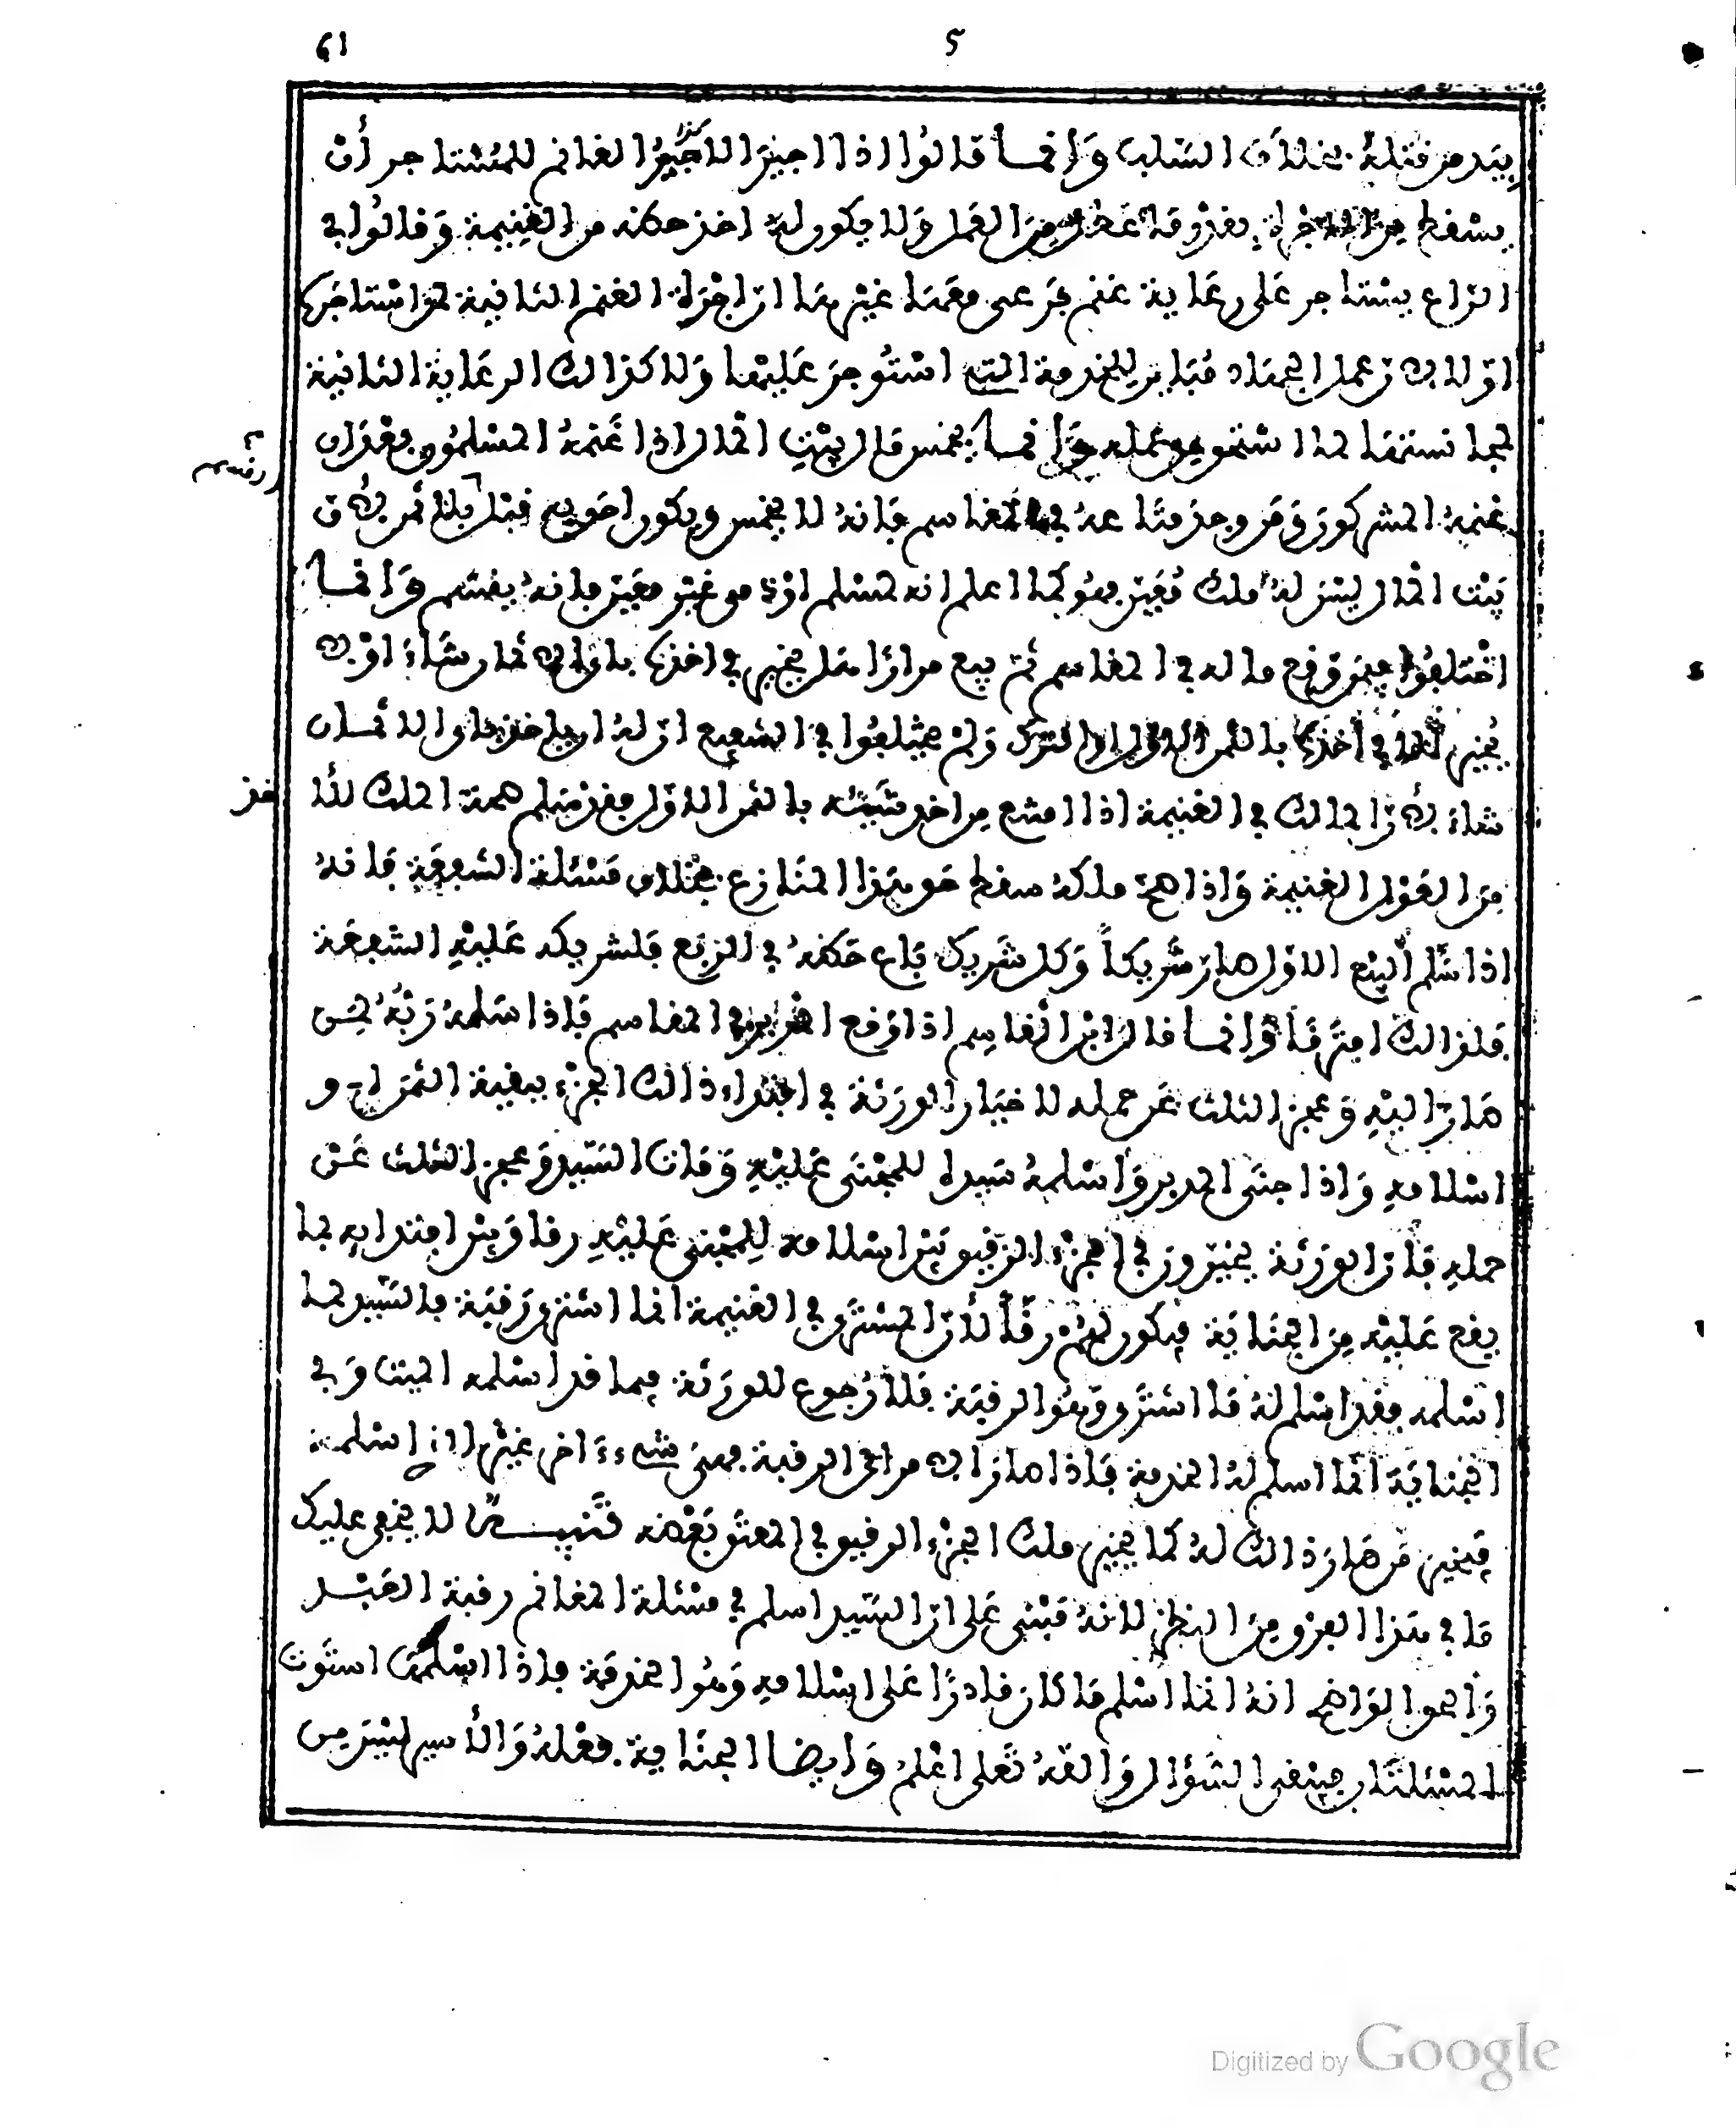 61 5
بيد من قتله بخلاف السلب وإنما قالوا إذا اجير الأجير الغانم للمستاجر أن
يسقط من الاجرة بقدر ما عطل من العمل ولا يكون له اخذ حظه من الغنيمة وقالوا في
الراع يستاجر على رعاية غنم فرعى معها غيرها ان اجرة الغنم الثانية لمن استاجره
اولا لان عمل الجهاد مباين للخدمة التي استوجر عليها ولا كذالك الرعاية الثانية
لمجانستها لما استحق من عمله وإنما يخمس مال بيت المال اذا غنمه المسلمون بعد ان
غنمه المشركون ومن وجد متاعه في المغاسم فانه لا يخمس ويكون احق به قبل بلا ثمن لان
بيت المال ليس له ملك معين فهو كما اعلم انه لمسلم او ذمي غير معين فإنه يقسم وإنما
اختلفوا فيمن وقع ماله في المغاسم ثم بيع مرارا هل يخير في اخذه باي الاثمان شاء او لا
يخير له في أخذه بالثمن الاول او الترك ولم يختلفوا في الشفيع ان له ان ياخذ باي الاثمان
شاء لان المالك في الغنيمة اذا امتنع من اخذ شيئه بالثمن الاول فقد سلم صحة الملك لأخذ
من العدو الغنيمة وإذا صح ملكه سقط حق هذا المنازع بخلاف مسئلة الشفعة فانه
اذا سلم البيع الاول صار شريكا وكل شريك باع حظه في الربع فلشريكه عليه الشفعة
فلذالك افترقا وإنما قال ابن القاسم اذا وقع المدبر في المغاسم فاذا سلمه ربه لمن
صار اليه وعجز الثلث عن حمله لا خيار للورثة في افتداء ذالك الجزء ببقية الثمن او
اسلامه وإذا جنى المدبر وأسلمه سيده للمجنى عليه ومات السيد وعجز الثلث عن
حمله فان الورثة يخيرون في الجزء الرقيق بين اسلامه للمجنى عليه رقا وبين افتدائه بما
يقع عليه من الجناية فيكون لهم رقا لأن المشتري في الغنيمة انما اشترى رقبة فالسيد لما
اسلمه فقد اسلم له ما اشترى وهو الرقبة فلا رجوع للورثة فيما قد اسلمه الميت وفي
الجناية انما اسلم له الخدمة فاذا صار الامر الى الرقبة فهي شيء اخر غير الذي اسلمه
فيخير من صار ذالك له كما يخير ملك الجزء الرقيق في المعتق بعضه تنبيه لا يخفى عليك
ما في هذا الفرق من النظر لانه مبني على ان السيد اسلم في مسئلة المغانم رقبة العبد
والحق الواضح انه انما اسلم ما كان قادرا على اسلامه وهو الخدمة فاذا اسلمها استوت
المسئلتان فيبقى السؤال والله تعلى اعلم وأيضا الجناية فعله والأسير ليس من